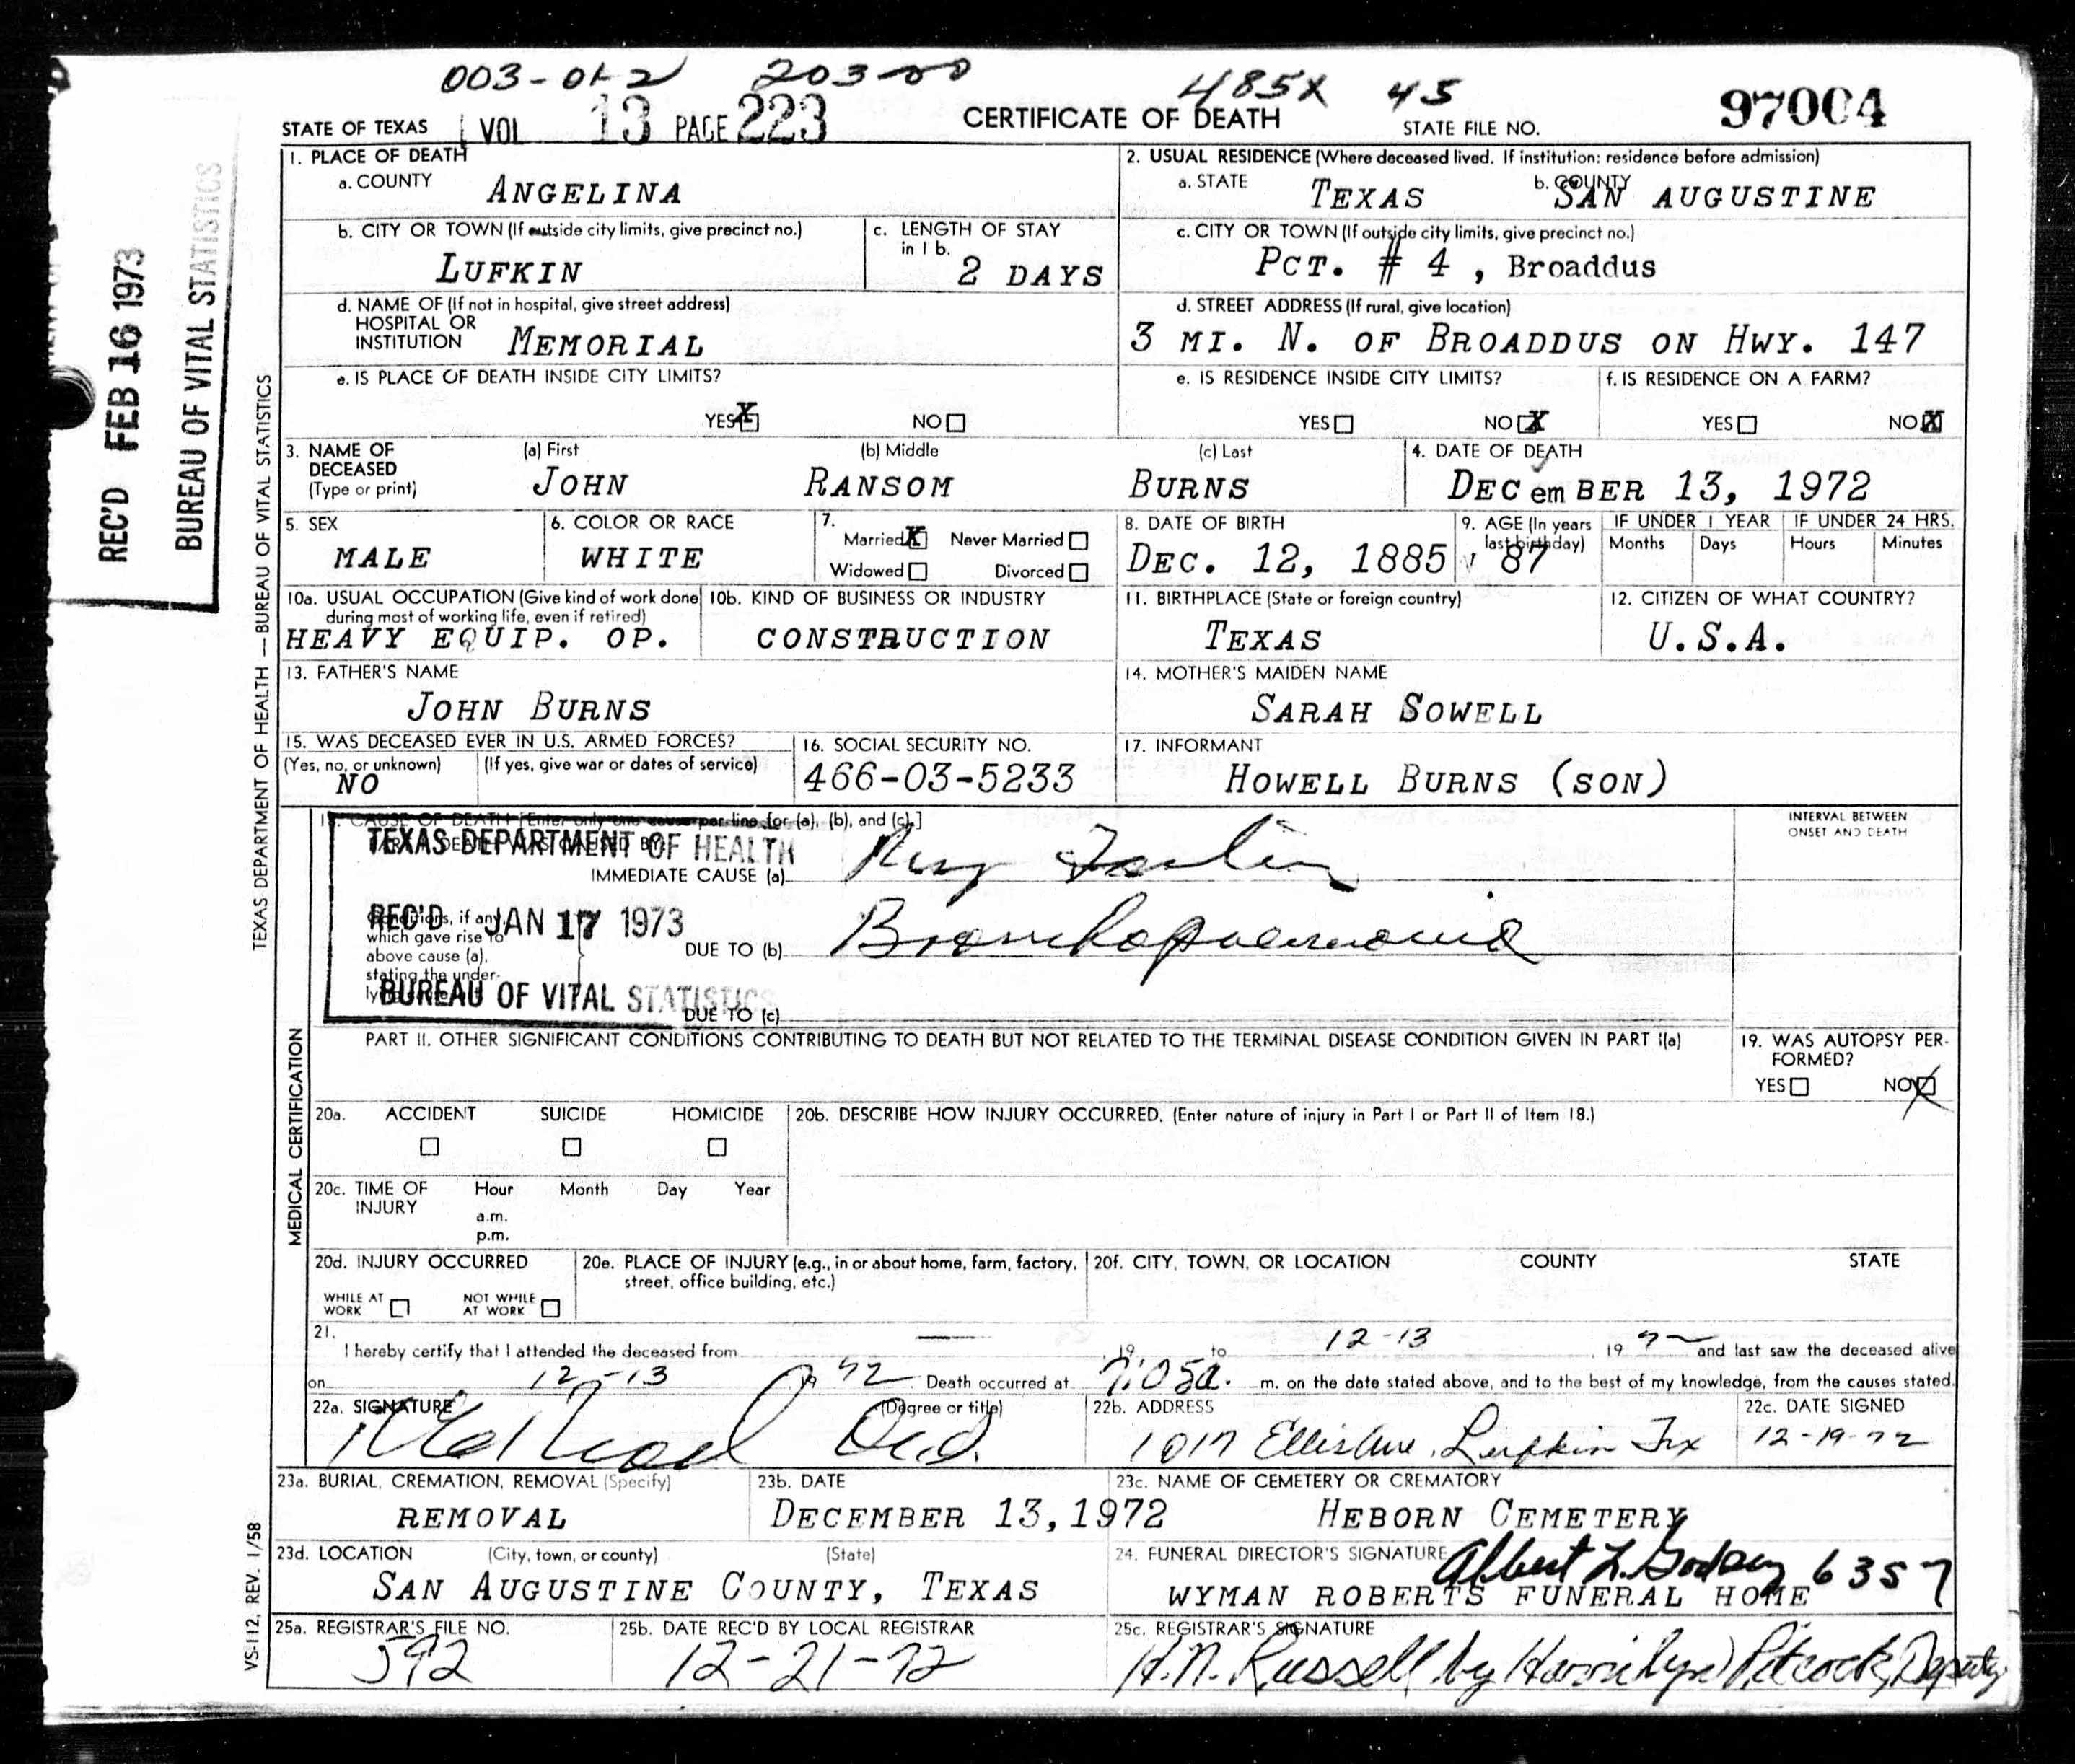 003-01-2 203-00 485X 45
STATE OF TEXAS VOL 13 PAGE 223 CERTIFICATE OF DEATH STATE FILE NO. 97004
1. PLACE OF DEATH
a. COUNTY ANGELINA
2. USUAL RESIDENCE (Where deceased lived. If institution: residence before admission)
a. STATE TEXAS b. COUNTY SAN AUGUSTINE
b. CITY OR TOWN (If outside city limits, give precinct no.)
LUFKIN
c. LENGTH OF STAY
in 1 b.
2 DAYS
c. CITY OR TOWN (If outside city limits, give precinct no.)
PCT. # 4, Broaddus
d. NAME OF (If not in hospital, give street address)
HOSPITAL OR
INSTITUTION MEMORIAL
d. STREET ADDRESS (If rural, give location)
3 MI. N. OF BROADDUS ON HWY. 147
e. IS PLACE OF DEATH INSIDE CITY LIMITS?
YES X NO
e. IS RESIDENCE INSIDE CITY LIMITS?
YES NO X
f. IS RESIDENCE ON A FARM?
YES NO X
3. NAME OF
DECEASED
(Type or print)
(a) First (b) Middle (c) Last
JOHN RANSOM BURNS
4. DATE OF DEATH
DECemBER 13, 1972
5. SEX
MALE
6. COLOR OR RACE
WHITE
7.
Married X Never Married
Widowed Divorced
8. DATE OF BIRTH
DEC. 12, 1885
9. AGE (In years
last birthday)
87
IF UNDER 1 YEAR IF UNDER 24 HRS.
Months Days Hours Minutes
10a. USUAL OCCUPATION (Give kind of work done
during most of working life, even if retired)
HEAVY EQUIP. OP.
10b. KIND OF BUSINESS OR INDUSTRY
CONSTRUCTION
11. BIRTHPLACE (State or foreign country)
TEXAS
12. CITIZEN OF WHAT COUNTRY?
U.S.A.
13. FATHER'S NAME
JOHN BURNS
14. MOTHER'S MAIDEN NAME
SARAH SOWELL
15. WAS DECEASED EVER IN U.S. ARMED FORCES?
(Yes, no, or unknown) (If yes, give war or dates of service)
NO
16. SOCIAL SECURITY NO.
466-03-5233
17. INFORMANT
HOWELL BURNS (SON)
CAUSE OF DEATH [Enter only one cause per line for (a), (b), and (c).]
INTERVAL BETWEEN
ONSET AND DEATH
TEXAS DEPARTMENT OF HEALTH
REC'D JAN 17 1973
BUREAU OF VITAL STATISTICS
IMMEDIATE CAUSE (a)
Conditions, if any,
which gave rise to
above cause (a),
stating the under-
DUE TO (b) Bronchopneumonia
DUE TO (c)
PART II. OTHER SIGNIFICANT CONDITIONS CONTRIBUTING TO DEATH BUT NOT RELATED TO THE TERMINAL DISEASE CONDITION GIVEN IN PART I(a)
19. WAS AUTOPSY PER-
FORMED?
YES NO X
20a. ACCIDENT SUICIDE HOMICIDE
20b. DESCRIBE HOW INJURY OCCURRED. (Enter nature of injury in Part I or Part II of Item 18.)
20c. TIME OF
INJURY
Hour Month Day Year
a.m.
p.m.
20d. INJURY OCCURRED
WHILE AT
WORK
NOT WHILE
AT WORK
20e. PLACE OF INJURY (e.g., in or about home, farm, factory,
street, office building, etc.)
20f. CITY, TOWN, OR LOCATION COUNTY STATE
21.
I hereby certify that I attended the deceased from — , 19 to 12-13, 1972 and last saw the deceased alive
on 12-13 72. Death occurred at 7:05a. m. on the date stated above, and to the best of my knowledge, from the causes stated.
22a. SIGNATURE (Degree or title)
22b. ADDRESS
1017 Ellis Ave, Lufkin Tex
22c. DATE SIGNED
12-19-72
23a. BURIAL, CREMATION, REMOVAL (Specify)
REMOVAL
23b. DATE
DECEMBER 13, 1972
23c. NAME OF CEMETERY OR CREMATORY
HEBORN CEMETERY
23d. LOCATION (City, town, or county) (State)
SAN AUGUSTINE COUNTY, TEXAS
24. FUNERAL DIRECTOR'S SIGNATURE Albert L. Godsey 6357
WYMAN ROBERTS FUNERAL HOME
25a. REGISTRAR'S FILE NO.
592
25b. DATE REC'D BY LOCAL REGISTRAR
12-21-72
25c. REGISTRAR'S SIGNATURE
H.N. Russell by Pitcock, Deputy
TEXAS DEPARTMENT OF HEALTH — BUREAU OF VITAL STATISTICS
MEDICAL CERTIFICATION
VS-112, REV. 1/58
REC'D FEB 16 1973
BUREAU OF VITAL STATISTICS